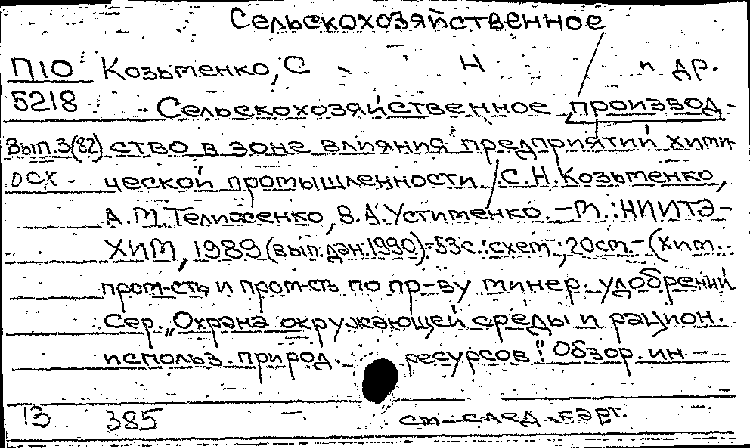 Сельскохозяйственное
П10 Козьменко, С Н и др.
5218 Сельскохозяйственное производ-
Вып.3(82) ство в зоне влияния предприятий хими-
ОСХ ческой промышленности / С.Н. Козьменко,
А.М. Телиженко, В.А. Устименко. – М.: НИИТЭ-
ХИМ, 1989 (вып. дан. 1990). – 53с.: схем.; 20см. – (Хим.
пром-сть и пром-сть по пр-ву минер. удобрений
Сер. „Охрана окружающей среды и рацион.
использ. природ. ресурсов": Обзор. ин-
13 385 см-след. карт.